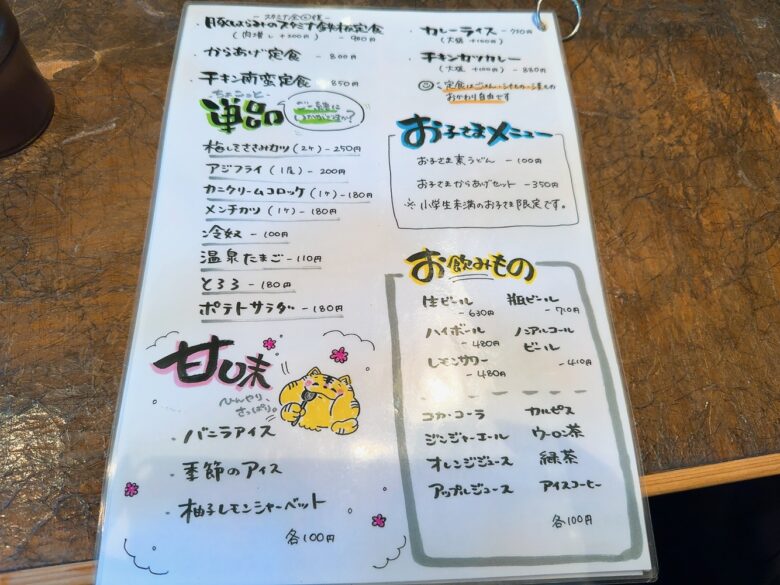 豚しょうが焼のスタミナ鉄板定食
(肉増し +200円) - 900円
からあげ定食 - 800円
チキン南蛮定食 - 850円
ちょこっと
単品
ご一緒に
いかがですか?
梅しそささみカツ (2ケ) - 250円
アジフライ (1尾) - 200円
カニクリームコロッケ (1ケ) - 180円
メンチカツ (1ケ) - 180円
冷奴 - 100円
温泉たまご - 110円
とろろ - 180円
ポテトサラダ - 180円
甘味
ひんやり、
さっぱり。
・バニラアイス
・季節のアイス
・柚子レモンシャーベット
各100円
・カレーライス - 710円
(大盛 +100円)
・チキンカツカレー
(大盛 +100円) - 880円
定食はごはん・みそ汁・漬もの
おかわり自由です
お子さまメニュー
お子さま素うどん - 100円
お子さまからあげセット - 350円
※小学生未満のお子さま限定です。
お飲みもの
生ビール - 630円
瓶ビール - 710円
ハイボール - 480円
ノンアルコールビール - 410円
レモンサワー - 480円
コカ・コーラ
カルピス
ジンジャーエール
ウーロン茶
オレンジジュース
緑茶
アップルジュース
アイスコーヒー
各100円